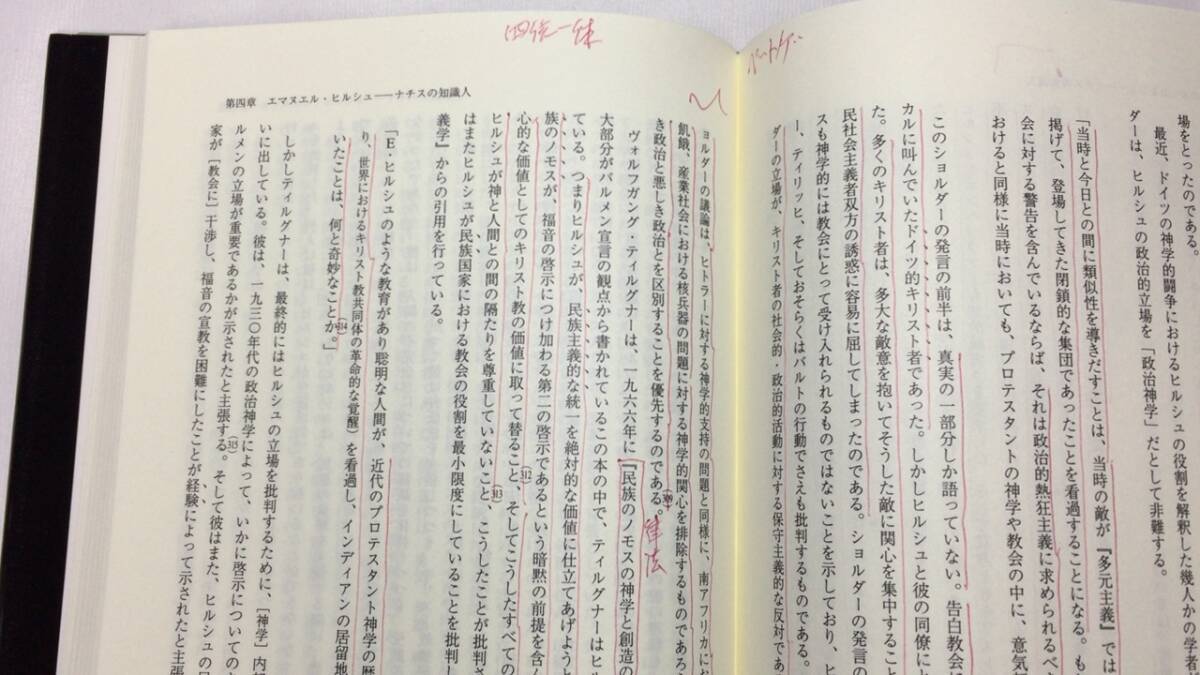 場をとったのである。
最近、ドイツの神学的闘争におけるヒルシュの役割を解釈した幾人かの学者
ダーは、ヒルシュの政治的立場を「政治神学」だとして非難する。
「当時と今日との間に類似性を導きだすことは、当時の敵が『多元主義』では
掲げて、登場してきた閉鎖的な集団であったことを看過することになる。も
会に対する警告を含んでいるならば、それは政治的熱狂主義に求められるべ
おけると同様に当時においても、プロテスタントの神学や教会の中に、意気
このショルダーの発言の前半は、真実の一部分しか語っていない。告白教会
カルに叫んでいたドイツ的キリスト者であった。しかしヒルシュと彼の同僚に
た。多くのキリスト者は、多大な敵意を抱いてそうした敵に関心を集中すること
民社会主義者双方の誘惑に容易に屈してしまったのである。ショルダーの発言の
スも神学的には教会にとって受け入れられるものではないことを示しており、ヒ
ー、ティリッヒ、そしておそらくはバルトの行動でさえも批判するものである。
ダーの立場が、キリスト者の社会的・政治的活動に対する保守主義的な反対であ
四統一体
第四章 エマヌエル・ヒルシュ——ナチスの知識人
ョルダーの議論は、ヒトラーに対する神学的支持の問題と同様に、南アフリカにお
飢餓、産業社会における核兵器の問題に対する神学的関心を排除するものであろ
き政治と悪しき政治とを区別することを優先するのである。(309)
律法
ヴォルフガング・ティルグナーは、一九六六年に『民族のノモスの神学と創造の
大部分がバルメン宣言の観点から書かれているこの本の中で、ティルグナーはヒル
ている。つまりヒルシュが、民族主義的な統一を絶対的な価値に仕立てあげよう
族のノモスが、福音の啓示につけ加わる第二の啓示であるという暗黙の前提を含ん
心的な価値としてのキリスト教の価値に取って替ること、(312)そしてこうしたすべての
ヒルシュが神と人間との間の隔たりを尊重していないこと、(313)こうしたことが批判さ
はまたヒルシュが民族国家における教会の役割を最小限度にしていることを批判し
義学』からの引用を行っている。
「E・ヒルシュのような教育があり聡明な人間が、近代のプロテスタント神学の歴
り、世界におけるキリスト教共同体の革命的な覚醒）を看過し、インディアンの居留地
いたことは、何と奇妙なことか。(314)」
しかしティルグナーは、最終的にはヒルシュの立場を批判するために、［神学］内部
いに出している。彼は、一九三〇年代の政治神学によって、いかに啓示についての
ルメンの立場が重要であるかが示されたと主張する。(315)そして彼はまた、ヒルシュの［
家が［教会に］干渉し、福音の宣教を困難にしたことが経験によって示されたと主張